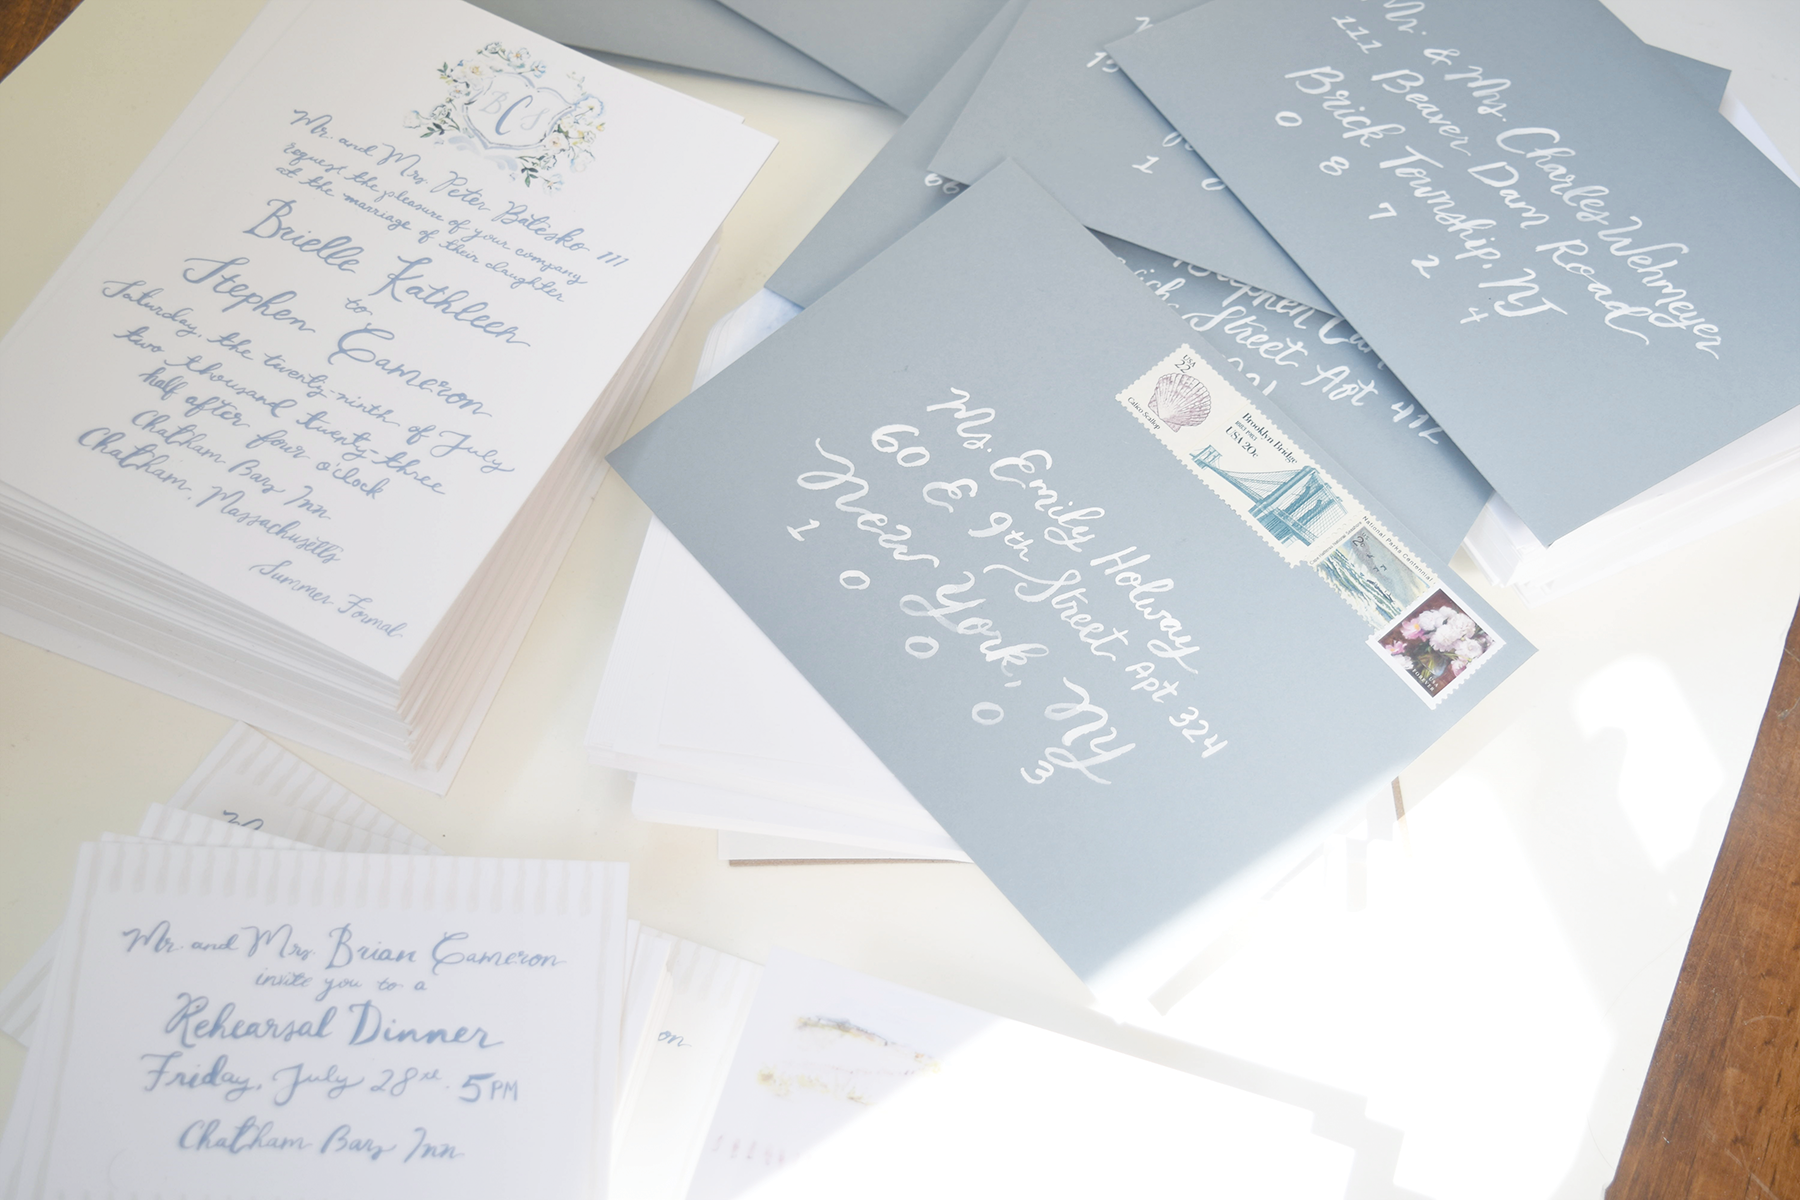 B C S
Mr. and Mrs. Peter Batesko III
request the pleasure of your company
at the marriage of their daughter
Brielle Kathleen
to
Stephen Cameron
Saturday, the twenty-ninth of July
two thousand twenty-three
half after four o'clock
Chatham Bars Inn
Chatham, Massachusetts
Summer Formal
Mr. and Mrs. Brian Cameron
invite you to a
Rehearsal Dinner
Friday, July 28
5 PM
Chatham Bars Inn
on
Ms. Emily Holway
60 E 9th Street Apt 324
New York, NY
1 0 0 0 3
USA
22
Calico Scallop
Brooklyn Bridge
1883 1983
USA 20c
National Parks Centennial
2c
USA
FOREVER
Mr. & Mrs. Charles Wehmeyer
111 Beaver Dam Road
Brick Township, NJ
0 8 7 2 4
Street Apt 412